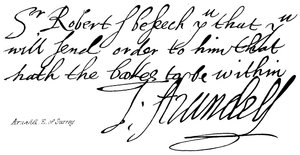 Sr Robert I beseeck yu that yu
will send order to him that
hath the bookes to be within
T. Arundell
Arundell, E. of Surrey.